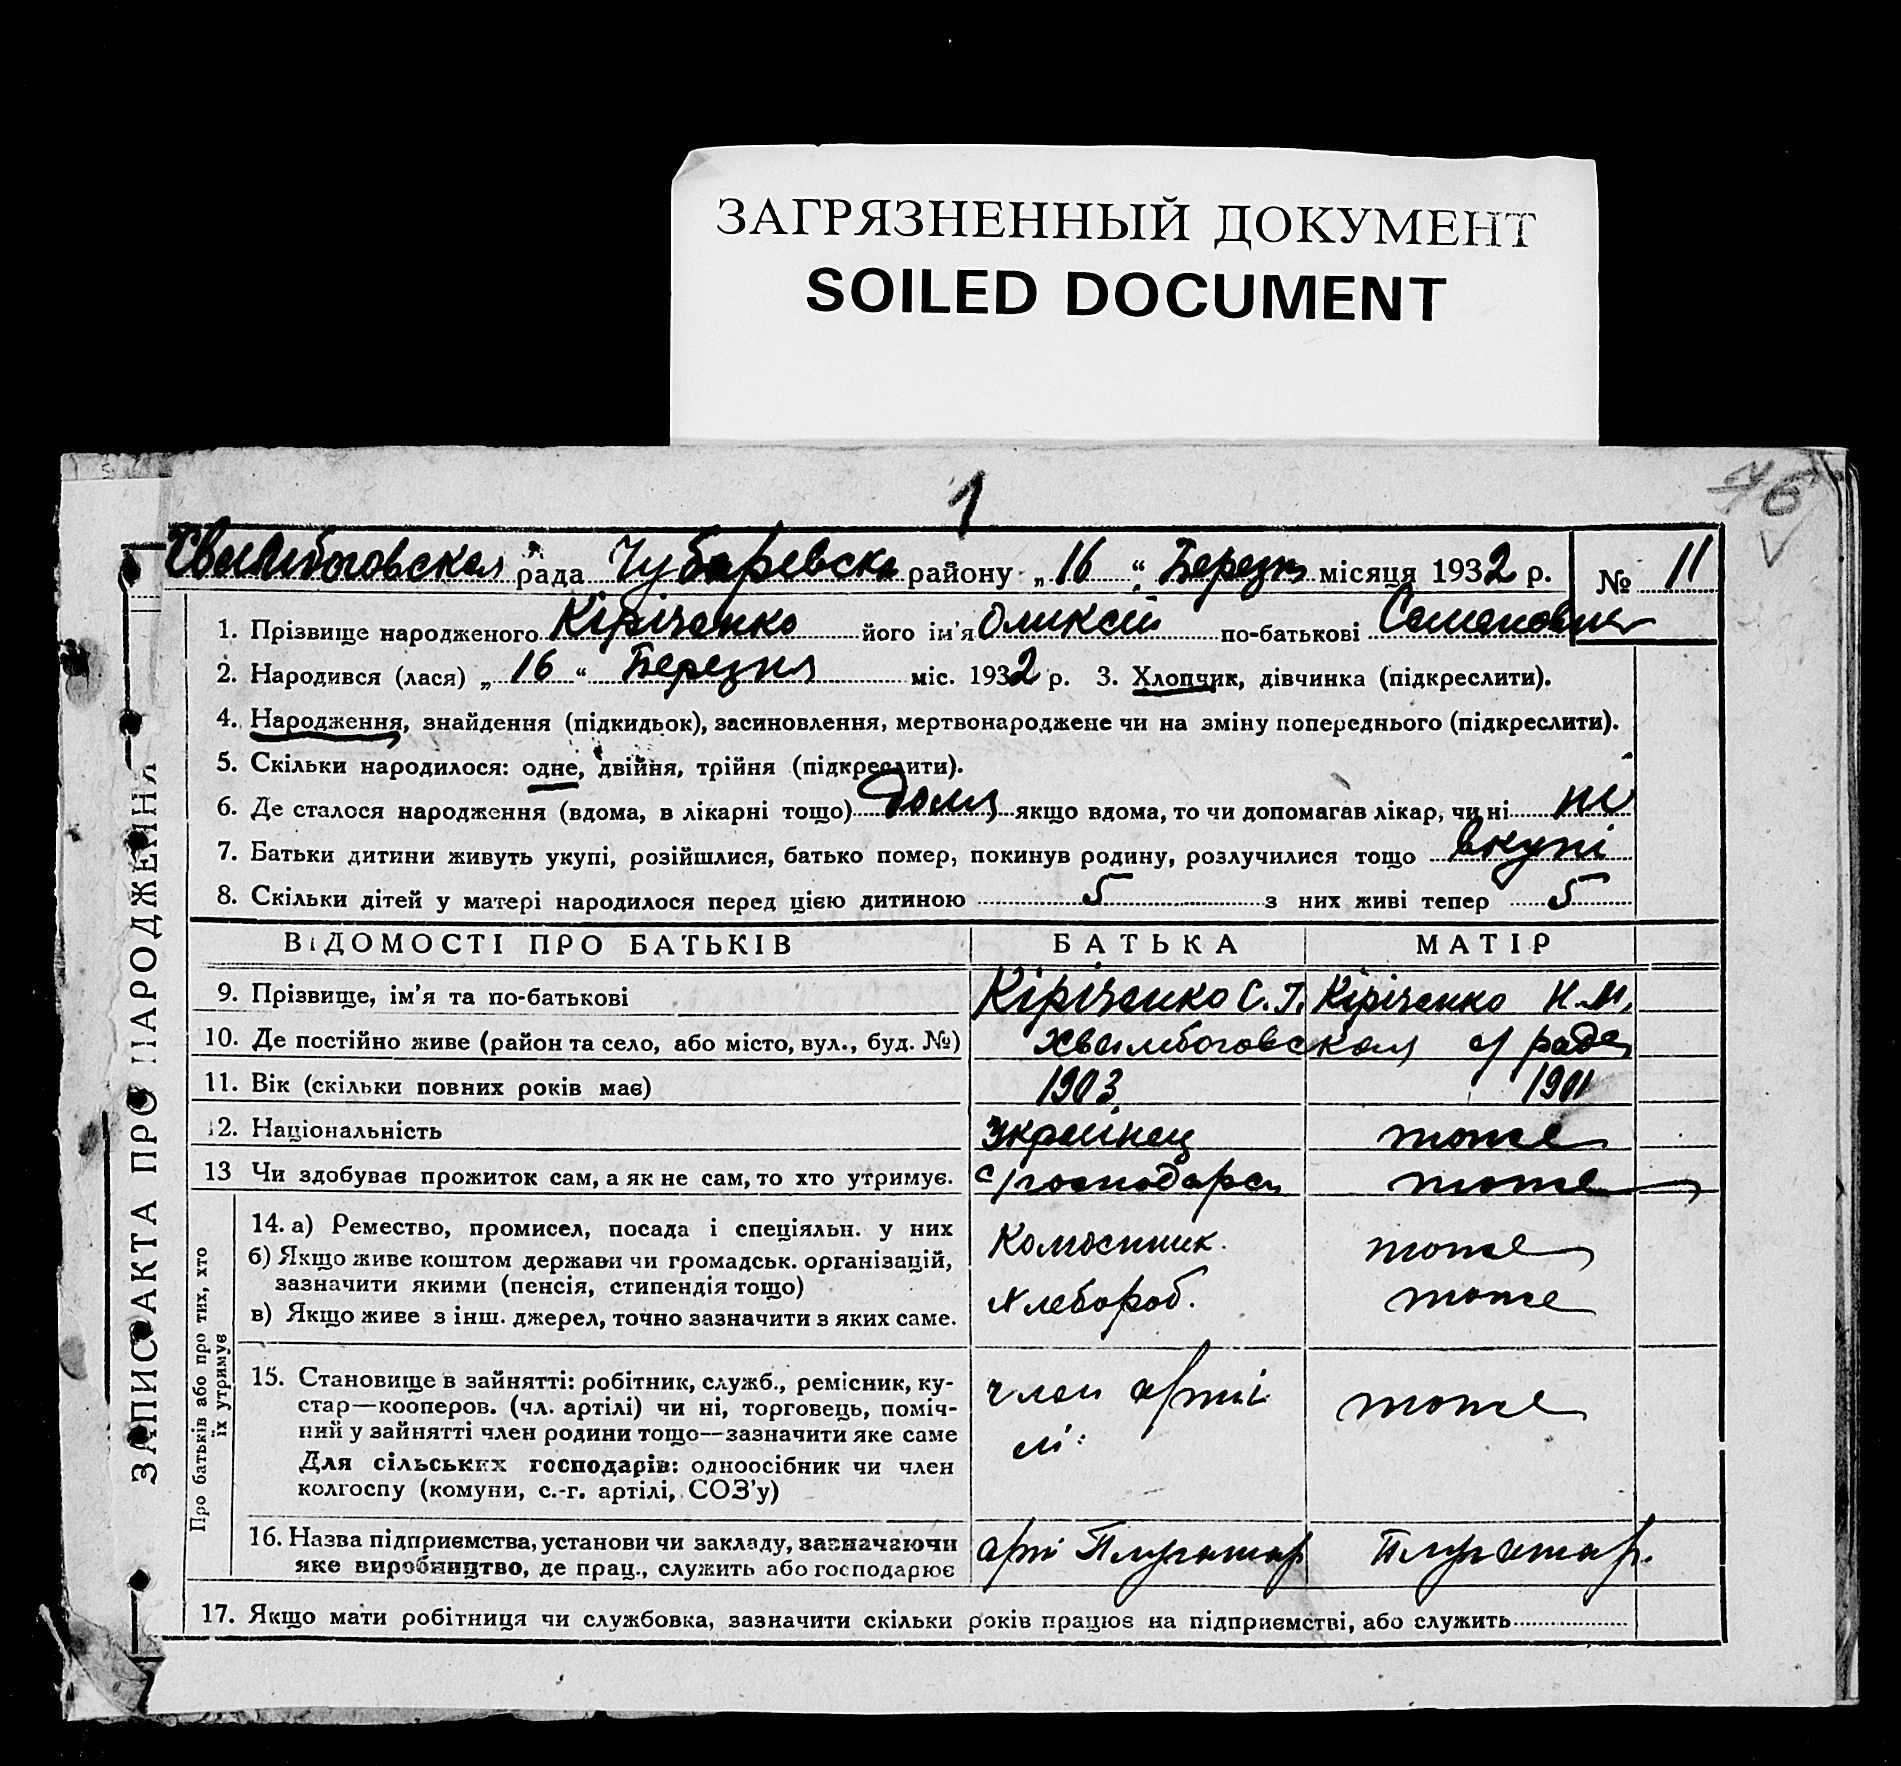 ЗАГРЯЗНЕННЫЙ ДОКУМЕНТ
SOILED DOCUMENT
1
46
Хвалибоговская рада Чубаревско району „16“ Березня місяця 1932 р. № 11
1. Прізвище народженого Кіріченко його ім'я Оликсій по-батькові
2. Народився (лася) „16“ Березня міс. 1932 р. 3. Хлопчик, дівчинка (підкреслити).
4. Народження, знайдення (підкидьок), засиновлення, мертвонароджене чи на зміну попереднього (підкреслити).
5. Скільки народилося: одне, двійня, трійня (підкреслити).
6. Де сталося народження (вдома, в лікарні тощо) дома якщо вдома, то чи допомагав лікар, чи ні ні
7. Батьки дитини живуть укупі, розійшлися, батько помер, покинув родину, розлучилися тощо вкупі
8. Скільки дітей у матері народилося перед цією дитиною 5 з них живі тепер 5
ВІДОМОСТІ ПРО БАТЬКІВ БАТЬКА МАТІР
9. Прізвище, ім'я та по-батькові Кіріченко С. Г. Кіріченко Н. М.
10. Де постійно живе (район та село, або місто, вул., буд. №) Хвалибоговская с/рада
11. Вік (скільки повних років має) 1903 1901
12. Національність Українец тоже
13 Чи здобував прожиток сам, а як не сам, то хто утримує. с/господара тоже
14. а) Ремество, промисел, посада і спеціяльн. у них Колгоспник. тоже
б) Якщо живе коштом держави чи громадськ. організацій,
зазначити якими (пенсія, стипендія тощо) Хлебороб. тоже
в) Якщо живе з інш. джерел, точно зазначити з яких саме.
15. Становище в зайнятті: робітник, служб., ремісник, ку-
стар—кооперов. (чл. артілі) чи ні, торговець, поміч- член арті тоже
ний у зайнятті член родини тощо—зазначити яке саме лі
Для сільських господарів: одноосібник чи член
колгоспу (комуни, с.-г. артілі, СОЗ'у)
16. Назва підприємства, установи чи закладу, зазначаючи арті Плугатар Плугатар.
яке виробництво, де прац., служить або господарює
17. Якщо мати робітниця чи службовка, зазначити скільки років працює на підприємстві, або служить
ЗАПИС АКТА ПРО НАРОДЖЕННЯ
Про батьків або про тих, хто
їх утримує